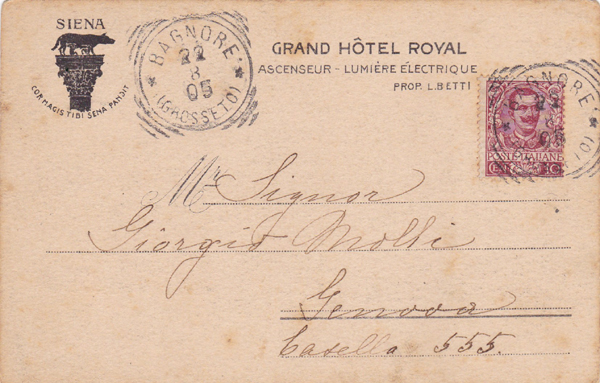 SIENA
COR MAGIS TIBI SENA PANDIT
BAGNORE
22
8
05
(GROSSETO)
GRAND HÔTEL ROYAL
ASCENSEUR - LUMIÈRE ÉLECTRIQUE
PROP. L. BETTI
BAGNORE
POSTE ITALIANE
Mr Signor
Giorgio Molli
Genova
Casella 555.